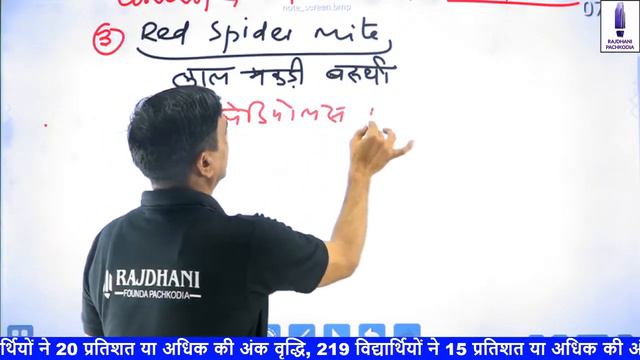 note_screen.bmp
07
③ Red Spider mite
लाल मकड़ी बरुथी
RAJDHANI
PACHKODIA
RAJDHANI
FOUNDA PACHKODIA
र्थियों ने 20 प्रतिशत या अधिक की अंक वृद्धि, 219 विद्यार्थियों ने 15 प्रतिशत या अधिक की अ